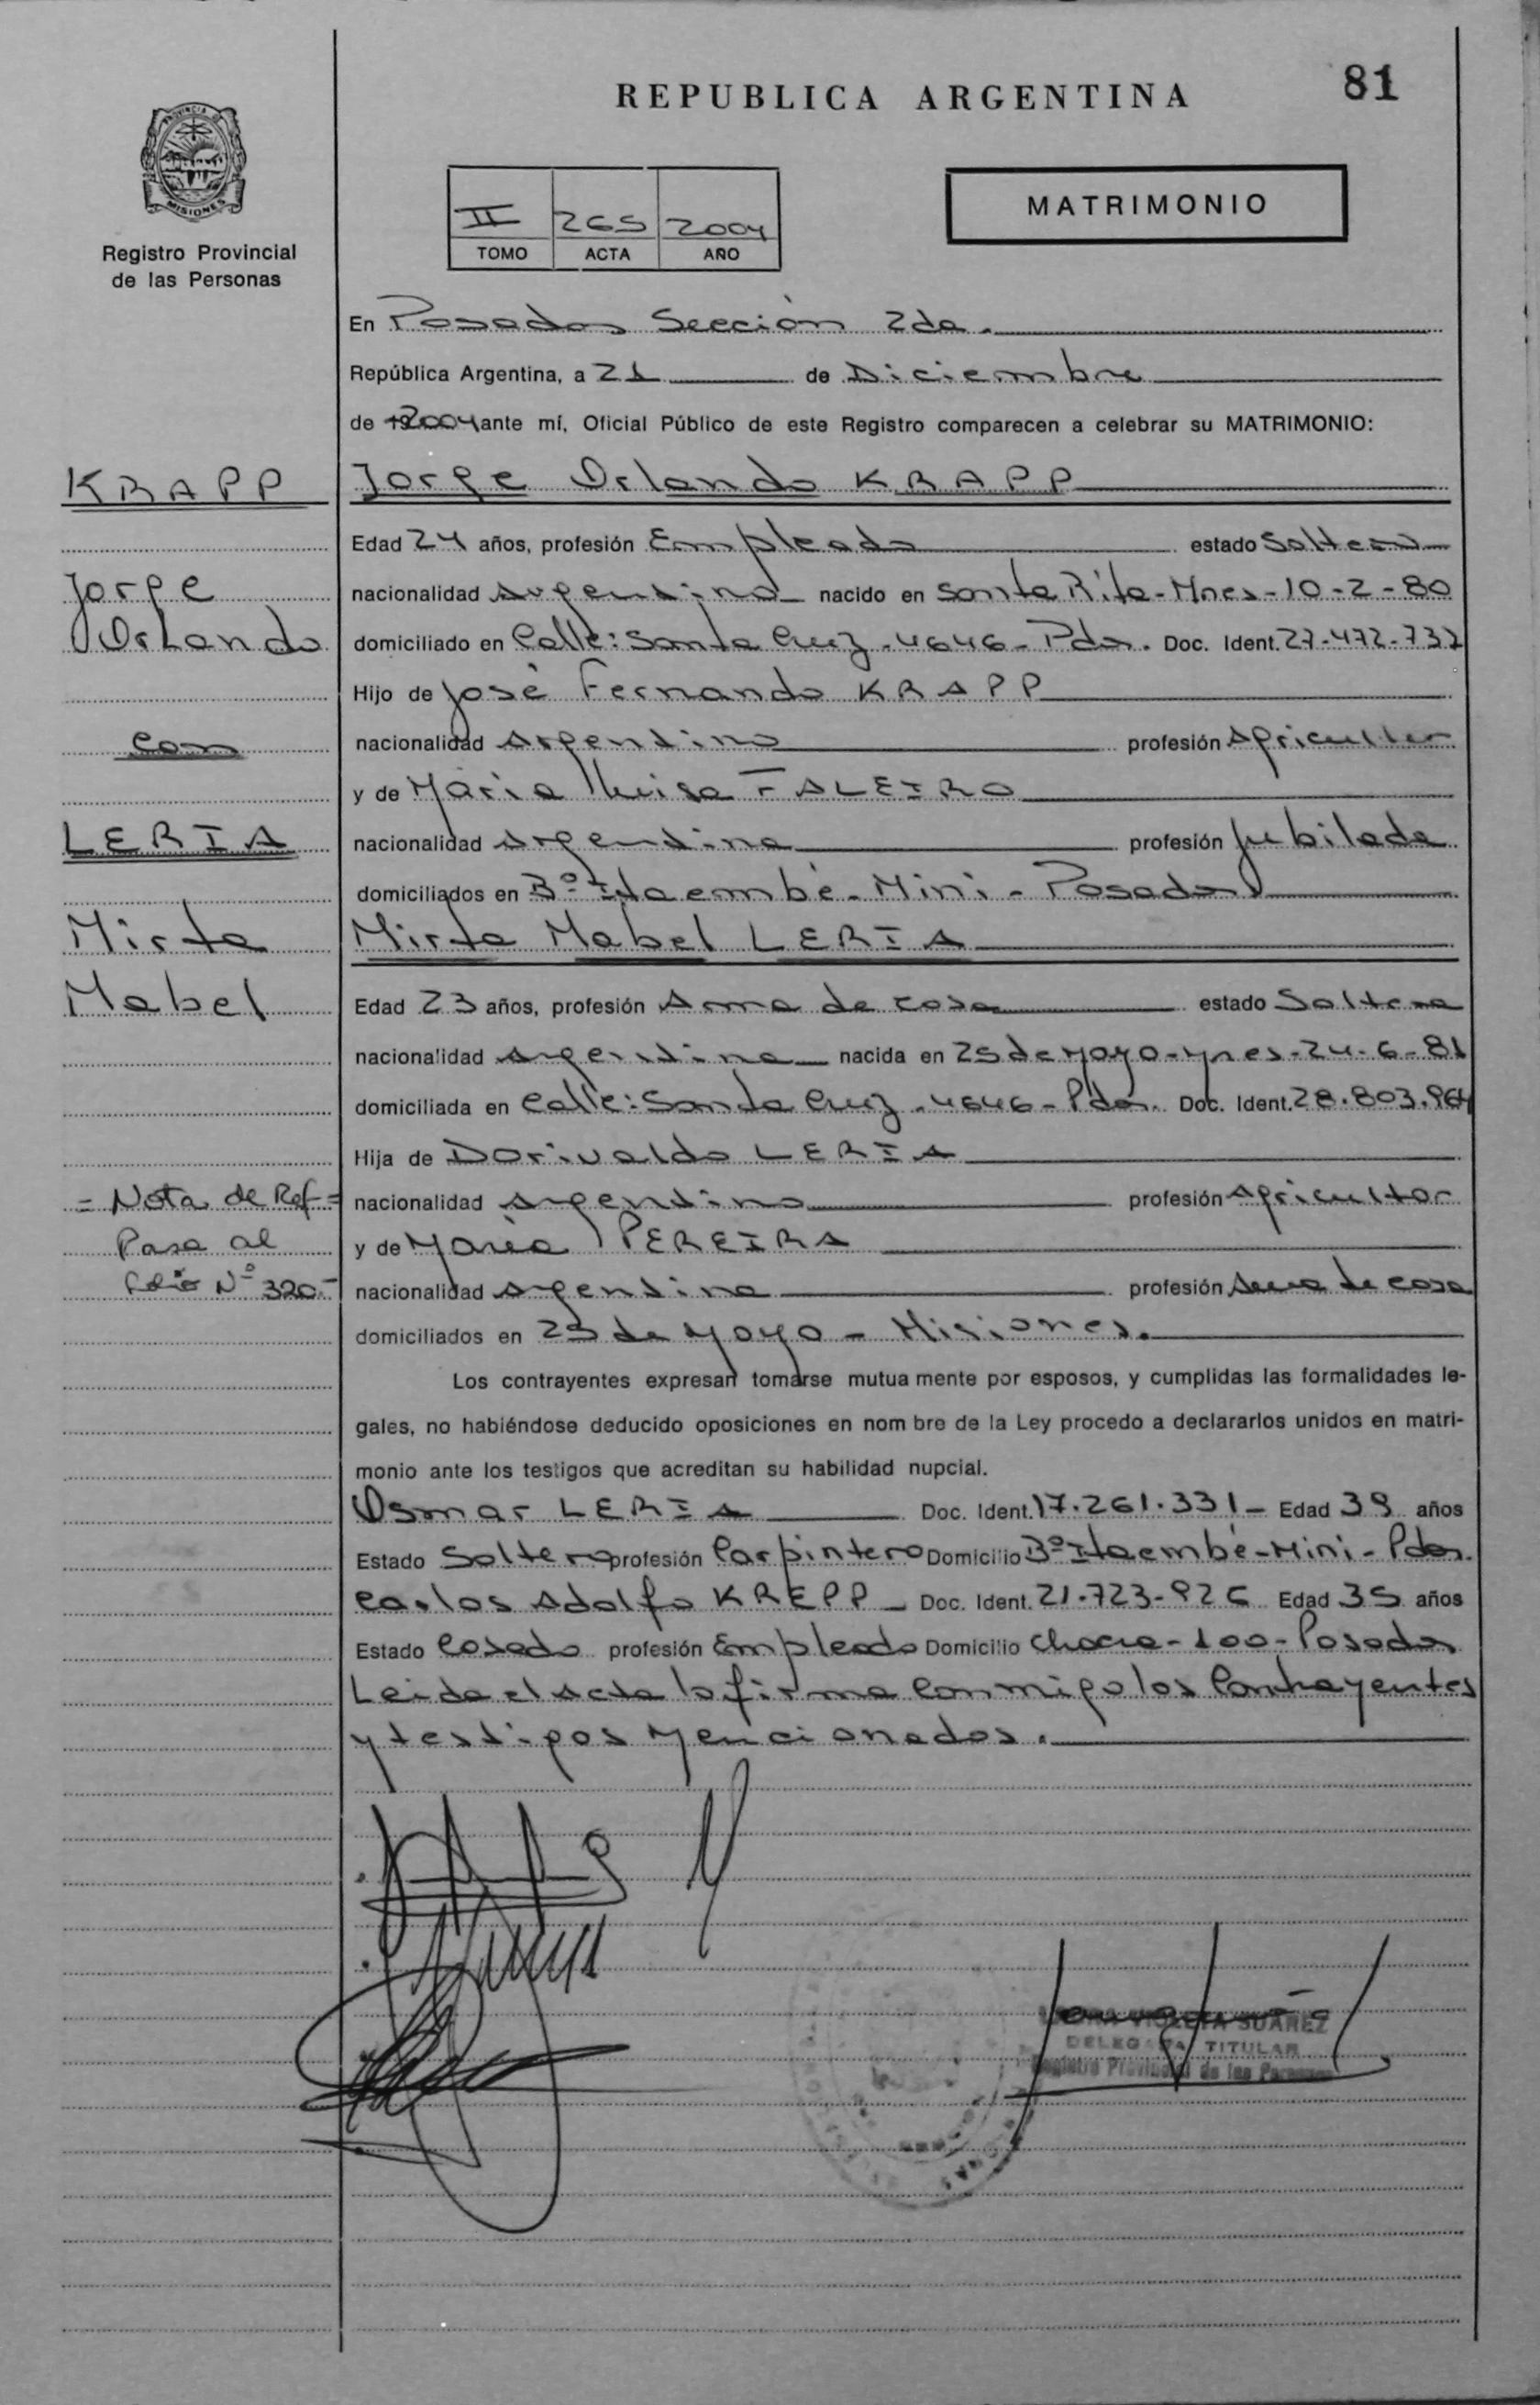 REPUBLICA ARGENTINA
81
PROVINCIA DE
MISIONES
Registro Provincial
de las Personas
II 265 2004
TOMO ACTA AÑO
MATRIMONIO
En Posadas Sección 2da.
República Argentina, a 21 de Diciembre
de 2004 ante mí, Oficial Público de este Registro comparecen a celebrar su MATRIMONIO:
KRAPP
Jorge Orlando KRAPP
Edad 24 años, profesión Empleado estado Soltero
Jorge
nacionalidad Argentino nacido en Santa Rita-Mnes-10-2-80
Orlando
domiciliado en Calle: Santa Cruz-4646-Pdas. Doc. Ident. 27-472-732
Hijo de José Fernando KRAPP
con
nacionalidad Argentino profesión Agricultor
y de María Luisa FALEIRO
LERIA
nacionalidad Argentina profesión Jubilada
domiciliados en Bº Itaembé-Mini-Posadas
Mirta
Mirta Mabel LERIA
Mabel
Edad 23 años, profesión Ama de casa estado Soltera
nacionalidad Argentina nacida en 25 de Mayo-Mnes-24-6-81
domiciliada en Calle: Santa Cruz-4646-Pdas. Doc. Ident. 28.803.964
Hija de Dorivaldo LERIA
= Nota de Ref=
nacionalidad Argentino profesión Agricultor
Pasa al
y de María PEREIRA
folio Nº 320-
nacionalidad Argentina profesión Ama de casa
domiciliados en 25 de Mayo - Misiones.
Los contrayentes expresan tomarse mutua mente por esposos, y cumplidas las formalidades le-
gales, no habiéndose deducido oposiciones en nom bre de la Ley procedo a declararlos unidos en matri-
monio ante los testigos que acreditan su habilidad nupcial.
Osmar LERIA Doc. Ident. 17.261.331- Edad 39 años
Estado Soltero profesión Carpintero Domicilio Bº Itaembé-Mini-Pdas.
Carlos Adolfo KREPP- Doc. Ident. 21-723-926 Edad 35 años
Estado Casado profesión Empleado Domicilio Chacra-100-Posadas
Leida el Acta la firma conmigo los Contrayentes
y testigos Mencionados.
VIOLETA SUAREZ
DELEGADA TITULAR
Registro Provincial de las Personas